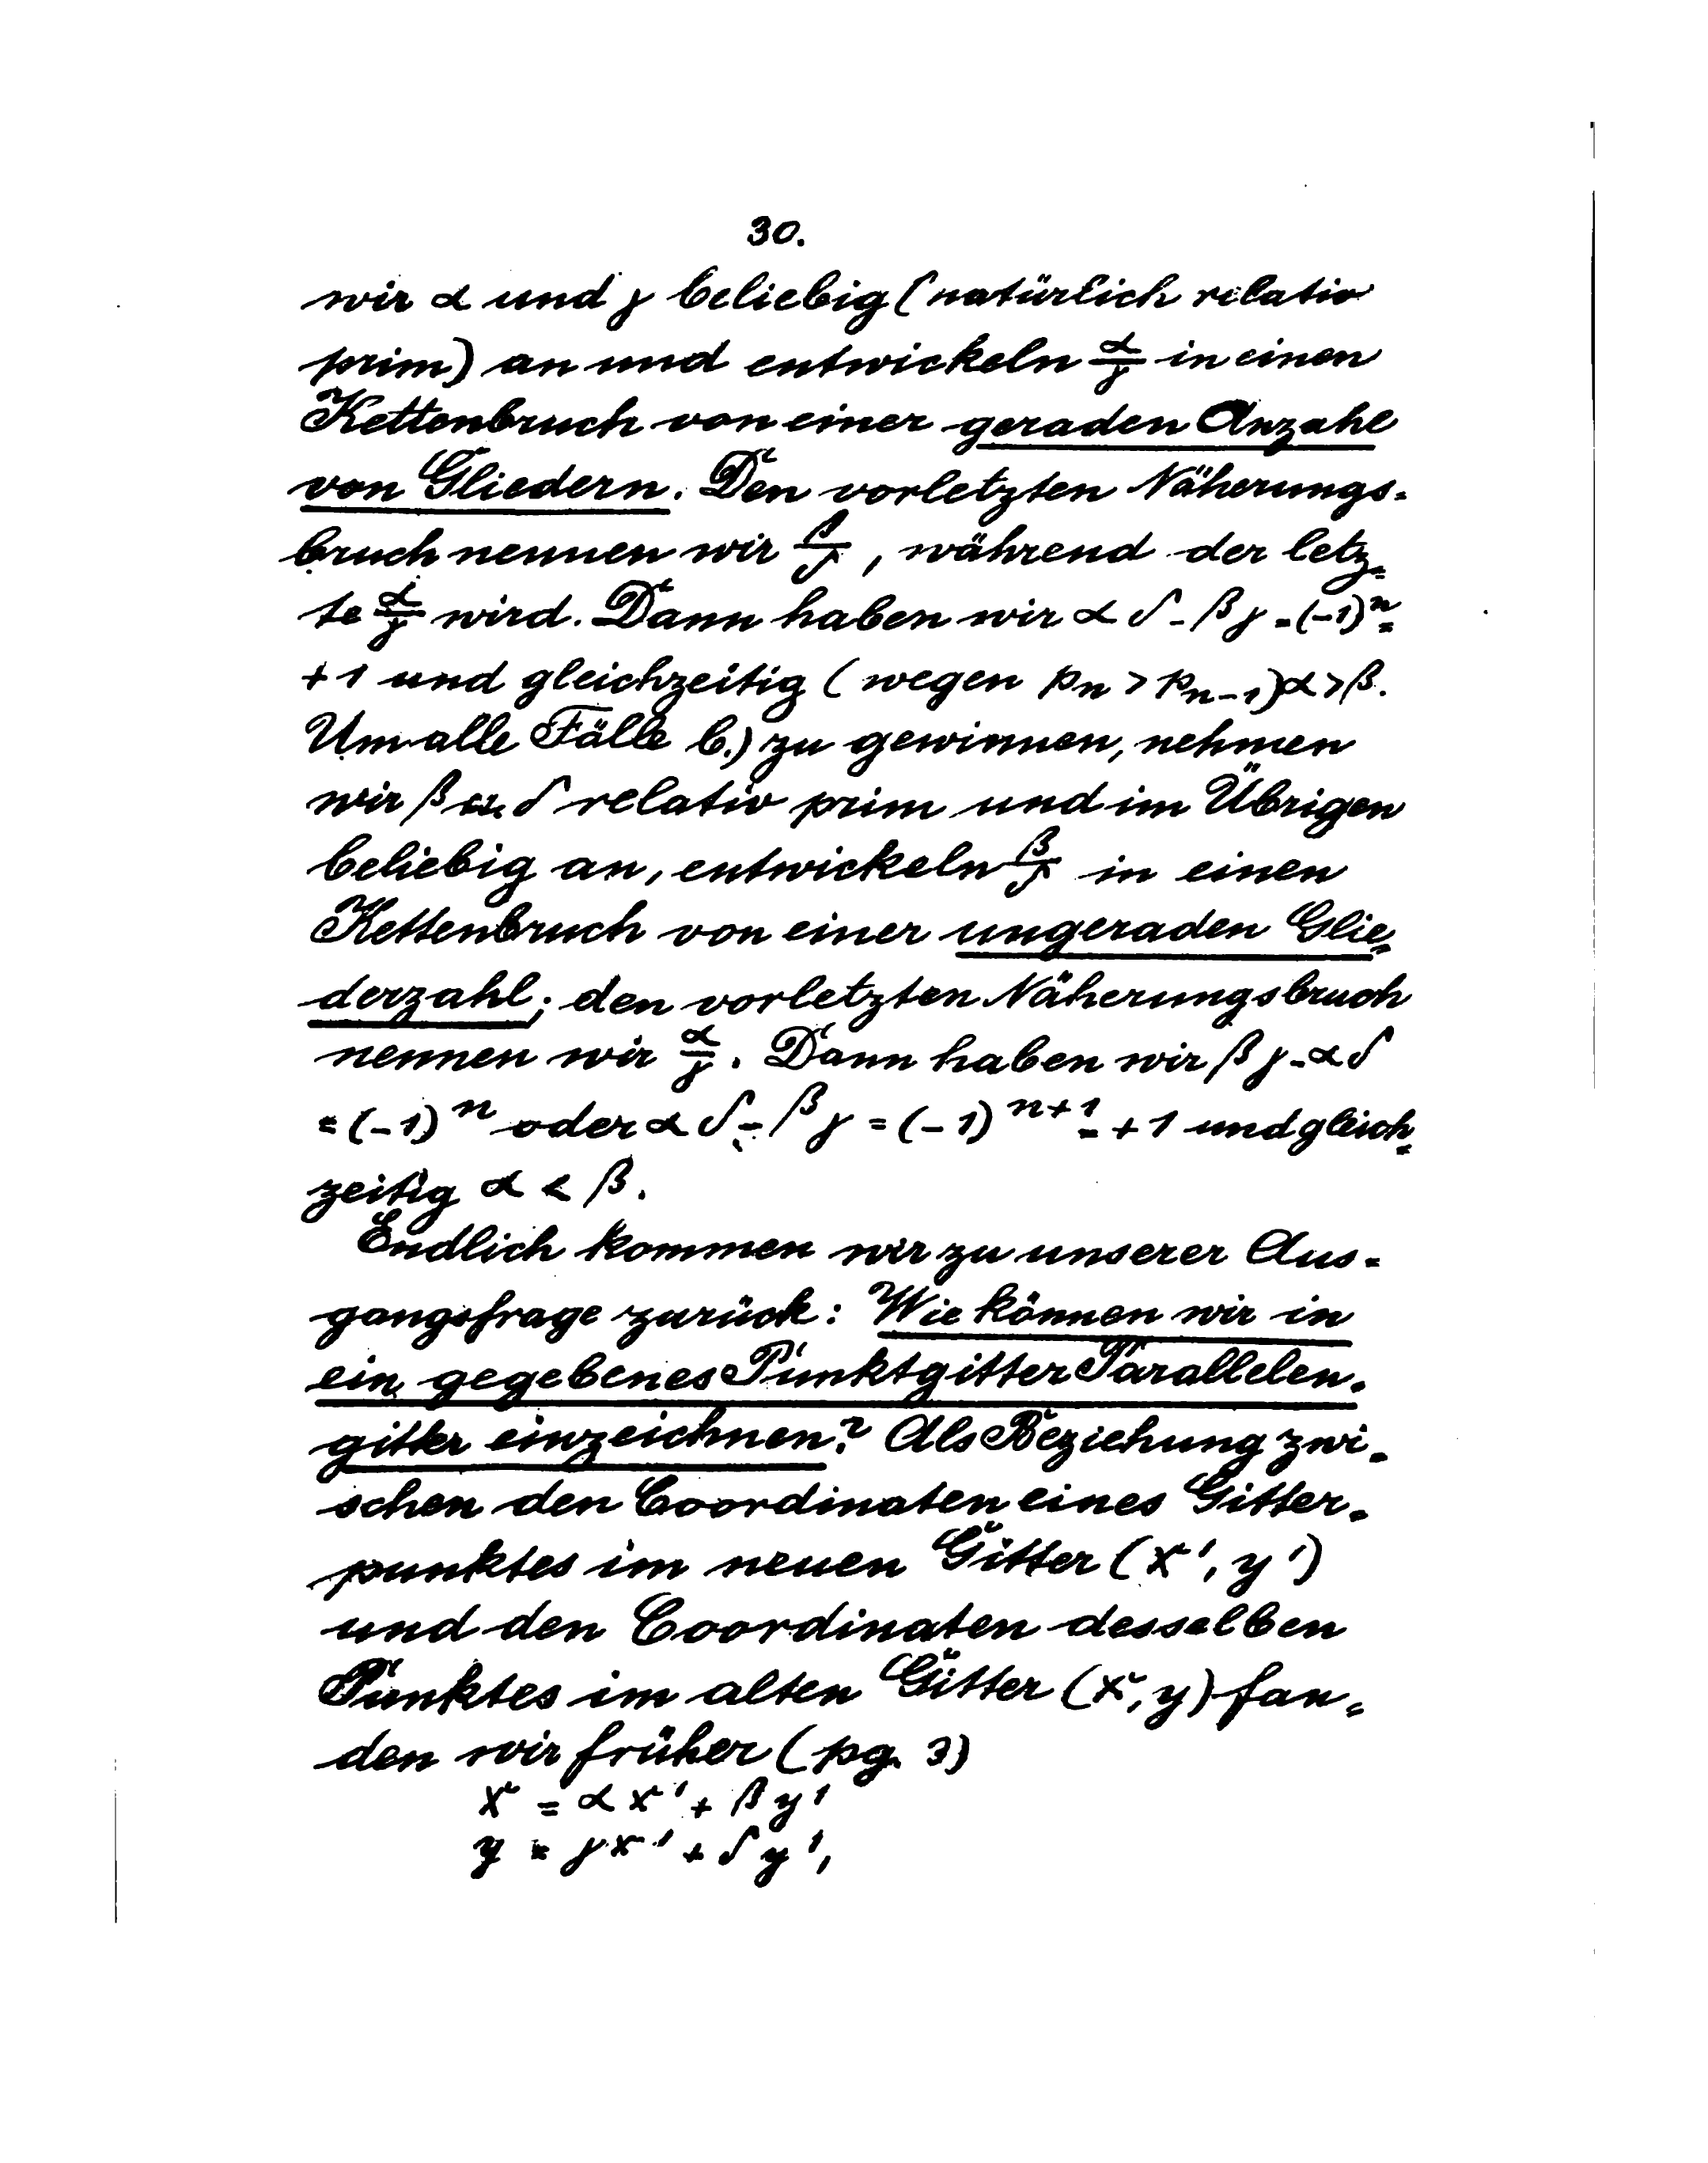 30.
wir α und γ beliebig (natürlich relativ
prim) an und entwickeln α/γ in einen
Kettenbruch von einer geraden Anzahl
von Gliedern. Den vorletzten Näherungs-
bruch nennen wir β/δ, während der letz-
te α/γ wird. Dann haben wir αδ - βγ = (-1)ⁿ =
+1 und gleichzeitig (wegen pₙ > pₙ₋₁) α > β.
Um alle Fälle b.) zu gewinnen, nehmen
wir β u. δ relativ prim und im Übrigen
beliebig an, entwickeln β/δ in einen
Kettenbruch von einer ungeraden Glie-
derzahl; den vorletzten Näherungsbruch
nennen wir α/γ. Dann haben wir βγ - αδ
= (-1)ⁿ oder αδ - βγ = (-1)ⁿ⁺¹ = +1 und gleich-
zeitig α < β.
Endlich kommen wir zu unserer Aus-
gangsfrage zurück: Wie können wir in
ein gegebenes Punktgitter Parallelen-
gitter einzeichnen? Als Beziehung zwi-
schen den Coordinaten eines Gitter-
punktes im neuen Gitter (x', y')
und den Coordinaten desselben
Punktes im alten Gitter (x, y) fan-
den wir früher (pg. 3)
x = αx' + βy'
y = γx' + δy',